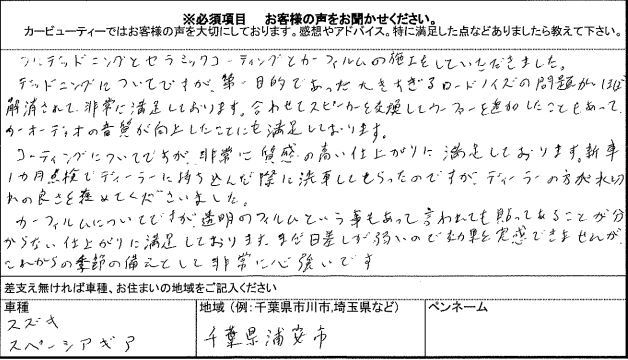 ※必須項目　お客様の声をお聞かせください。
カービューティーではお客様の声を大切にしております。感想やアドバイス。特に満足した点などありましたら教えて下さい。
デッドニングとセラミックコーティングとカーフィルムの施工をしていただきました。
デッドニングについてですが、第一目的であった大きすぎるロードノイズの問題がほぼ
解消されて非常に満足しております。合わせてスピーカーを交換しウーファーを追加したこともあって
カーオーディオの音質が向上したことにも満足しております。
コーティングについてですが、非常に質感の高い仕上がりに満足しております。新車
1カ月点検でディーラーに持ち込んだ際に洗車してもらったのですが、ディーラーの方が水切
れの良さを褒めてくださいました。
カーフィルムについてですが、透明のフィルムという事もあって言われても貼ってあることが分
からない仕上がりに満足しております。まだ日差しが弱いので効果を実感できませんが、
これからの季節の備えとして非常に心強いです
差支え無ければ車種、お住まいの地域をご記入ください
車種
地域（例:千葉県市川市,埼玉県など）
ペンネーム
スズキ
スペーシアギア
千葉県浦安市